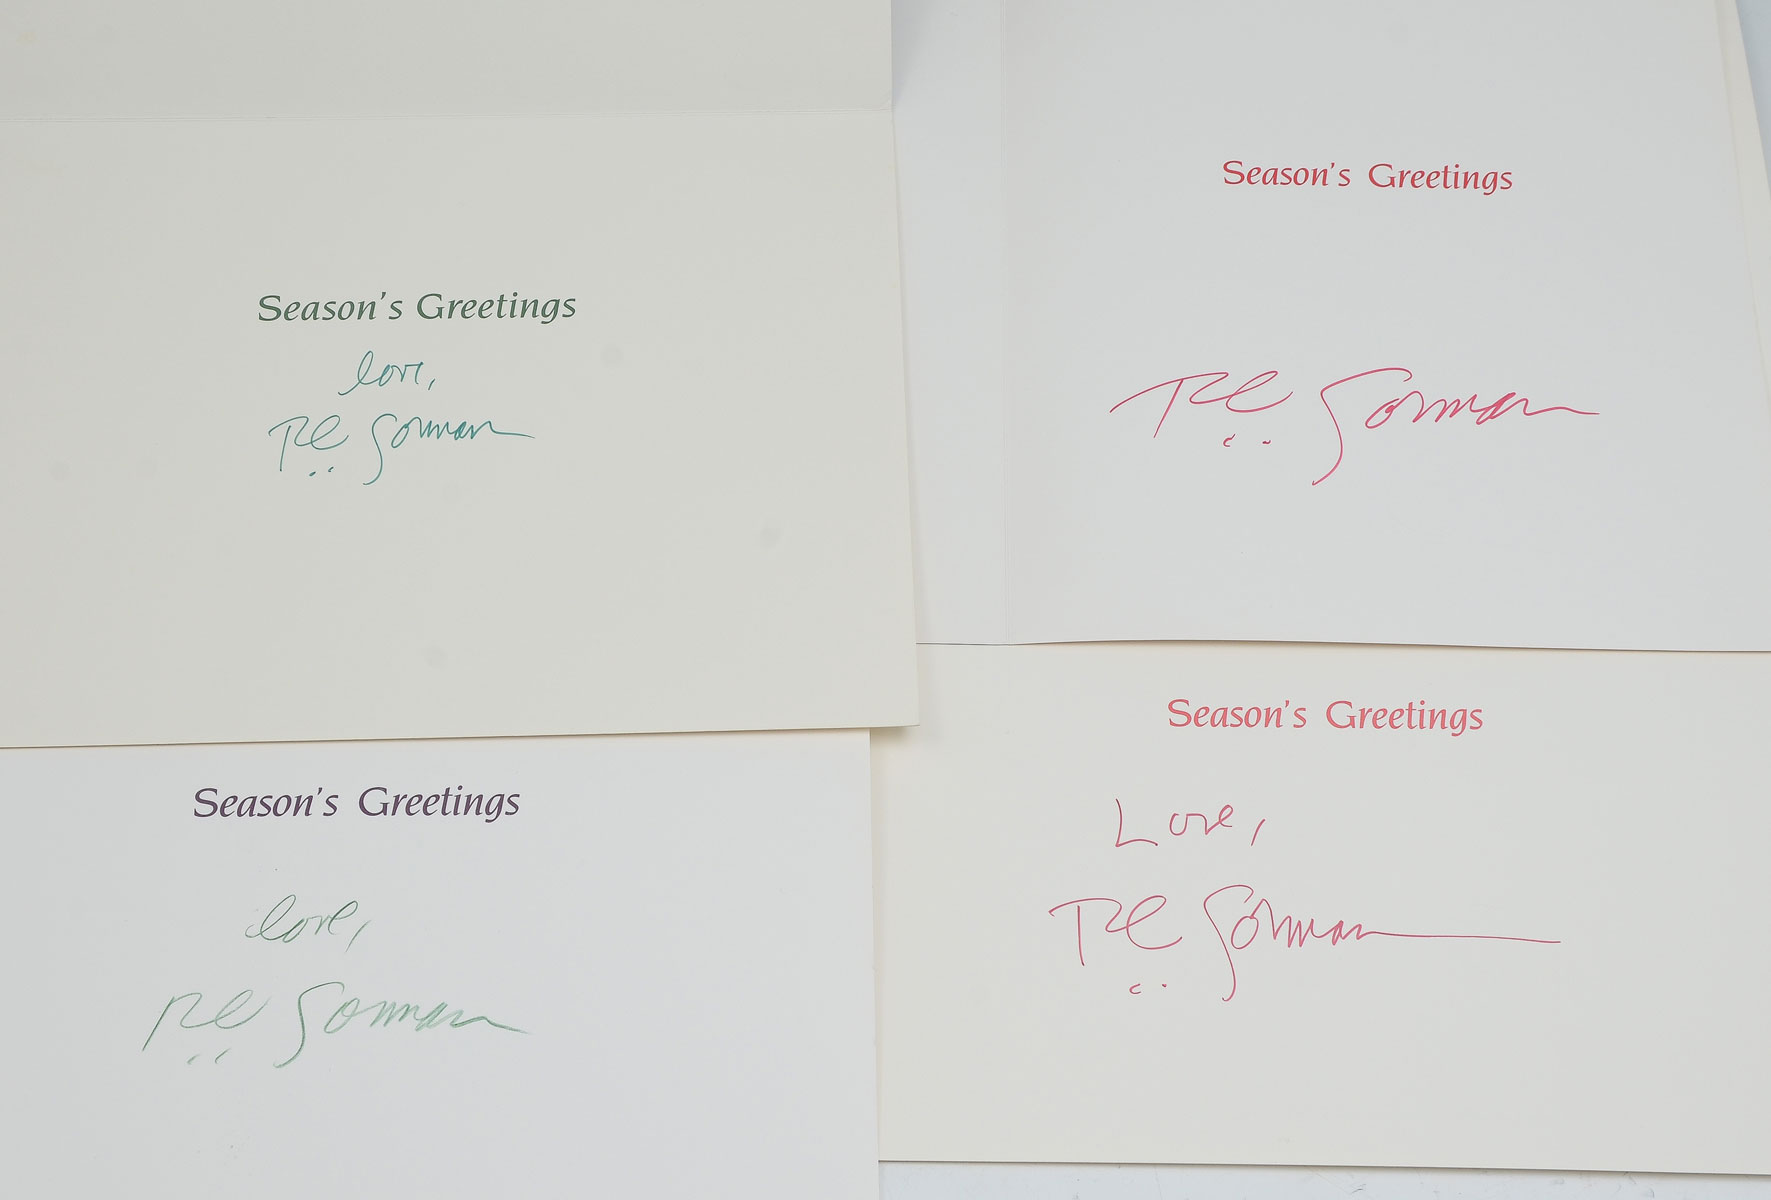 Season's Greetings
love,
RC Gorman
Season's Greetings
RC Gorman
Season's Greetings
love,
RC Gorman
Season's Greetings
Love,
RC Gorman